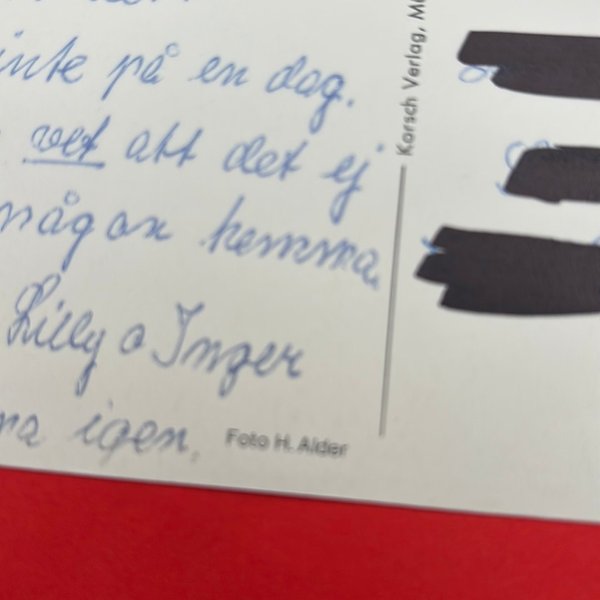 inte på en dag.
vet att det ej
någon hemma.
Lilly o Inger
igen.
Foto H. Alder
Korsch Verlag,